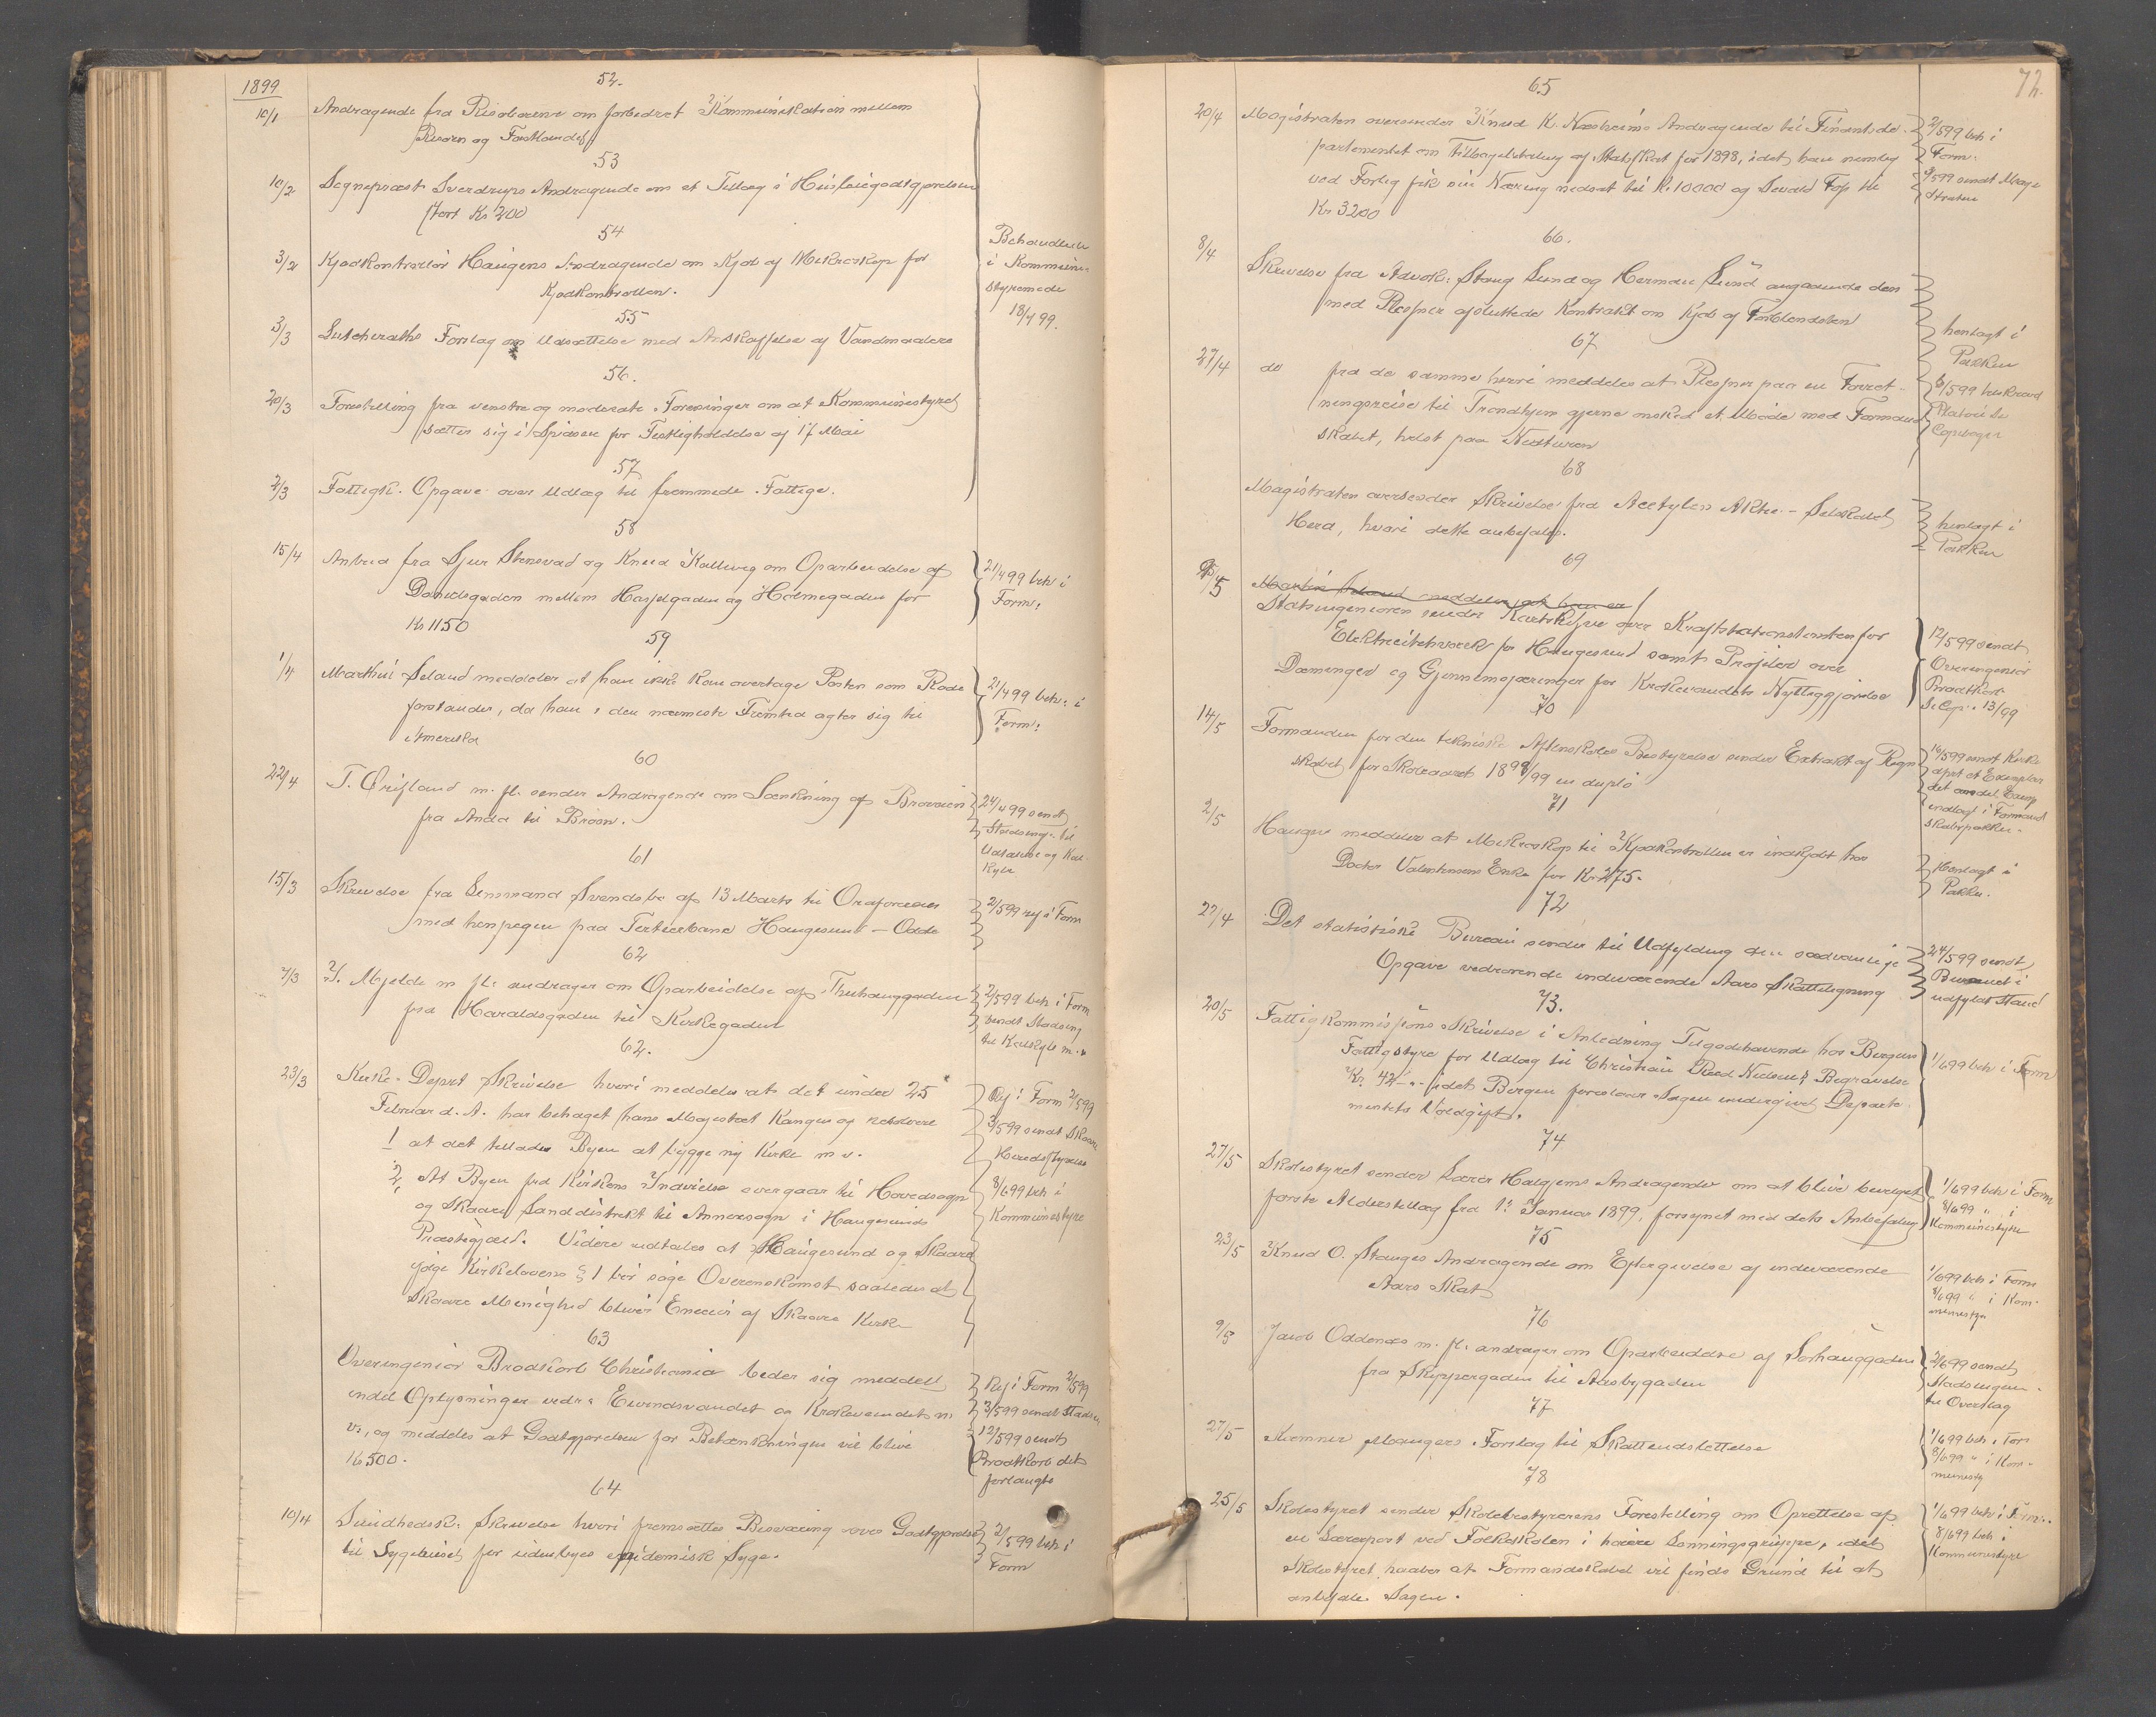 1899
52.
10/1 Andragende fra Risøboerne om forbedret Kommunikation mellem
Risøen og Fastlandet
53
10/2 Sognepræst Sverdrups Andragende om et Tillæg i Husleiegodtgjørelsen
stort Kr 200
54
3/2 Kjødkontrollør Haugens Andragende om Kjøb af Mikroskop for
Kjødkontrollen.
Behandlede
i Kommune-
styremøde
18/4 99.
55
3/3 Forslag om Udsættelse med Anskaffelse af Vandmaalere
56.
20/3 Forestilling fra venstre og moderate Foreninger om at Kommunestyret
sætter sig i Spidsen for Festligholdelse af 17 Mai
57
2/3 Fattigk. Opgave over Udlæg til fremmede Fattige.
58
15/4 Anbud fra Sjur Stensvad og Knud Kallevig om Oparbeidelse af
Davidsgaden mellem Hasselgaden og Holmegaden for
Kr 1150
21/4 99 beh i
Form:
59
1/4 Marthin Seland meddeler at han ikke kan overtage Posten som Rode
forstander, da han i den nærmeste Fremtid agter sig til
Amerika
21/4 99 beh: i
Form:
60
22/4 T. m. fl. sender Andragende om Sænkning af Broveien
fra Anda til Broen.
24/4 99 sendt
Stadsing. til
Udtalelse og Kal-
kyle
61
15/3 Skrivelse fra Lensmand Svendsbø af 13 Marts til Ordføreren
med henpegen paa Tertiærbane Haugesund - Odde
2/5 99 ref i Form
62
7/3 Y. Mjelde m fl. andrager om Oparbeidelse af Thuhauggaden
fra Haraldsgaden til Kirkegaden
2/5 99 beh i Form
sendt Stadsing
til Kalkyle m. v
62.
23/3 Kirke-Depart Skrivelse hvori meddeles at det under 25
Februar d. A. har behaget hans Majestæt Kongen og resolvere
1 at det tillades Byen at bygge ny Kirke m v.
2, At Byen fra Kirkens Indvielse overgaar til Hovedsogn
og Skaare Landdistrikt til Annexsogn i Haugesunds
Præstegjæld. Videre udtales at Haugesund og Skaare
ifølge Kirkelovens § 1 bør søge Overenskomst saaledes at
Skaare Menighed bliver Eneeier af Skaare Kirke
Ref i Form 2/5 99
3/5 99 sendt Skaare
Heredsstyrelse
8/6 99 beh i
Kommunestyre
63
Overingeniør Bradkorb Christiania beder sig meddelt
endel Oplysninger vedr: Eivindsvandet og Krokevandet m
v., og meddeles at Godtgjørelsen for Betænkningen vil blive
Kr 500.
Ref i Form 2/5 99
3/5 99 sendt Stadsin
12/5 99 sendt
Bradtkorb det
forlangte
64
10/4 Sundhedsk: Skrivelse hvori fremsættes Besværing over Godtgjørelse
til Sygehuset for udenbyes epidemisk Syge.
2/5 99 beh i
Form
72.
65
20/4 Magistraten oversender Knud K. Næsheims Andragende til Finantsde-
partementet om Tilbagebetaling af Statsskat for 1898, idet han nemlig
ved Forlig fik sin Næring nedsat til Kr 10000 og Sevald Foss til
Kr 3200
2/5 99 beh i
Form:
9/5 99 sendt Magi-
straten
66.
8/4 Skrivelse fra Advok: Stang Lund og Herman Lund angaaende den
med Plesner afsluttede Kontrakt om Kjøb af
67
27/4 do fra de samme hvori meddeles at Plesner paa en Forret-
ningsreise til Trondhjem gjerne ønsked et Møde med Formand-
skabet, helst paa Nedturen
henlagt i
Pakken
6/5 99 besvaret
Copiboger
68
Magistraten oversender Skrivelse fra Acetylen Aktie-Selskabet
Hera, hvori dette anbefales.
henlagt i
Pakken
69
5/5 Marthin Seland meddeler at han er
Statsingeniøren sender Kartskisse over Kraftstationstomten for
Elektricitetsværk for Haugesund samt Profiler over
Dæminger og Gjennemskjæringer for Krokevandets Nyttiggjørelse
12/5 99 sendt
Overingeniør
Bradtkorb
Se Cop. 13/99
70
14/5 Formanden for den tekniske Aftenskoles Bestyrelse sender Extrakt af Regn
skabet for Skoleaaret 1898/99 en duplo
16/5 99 sendt Kirke
dpt et Exemplar
det andet Exemp
indlagt i Formand
skabspakken.
71
2/5 Haugen meddeler at Mikroskop til Kjødkontrollen er indkjøbt hos
Doctor Valentinsens Enke for Kr 275.
Henlagt i
Pakken.
72
27/4 Det statistiske Bureau sender til Udfylding den sædvanlige
Opgave vedrørende indeværende Aars Skatteligning
24/5 99 sendt
Bureauet i
udfyldt Stand
73.
20/5 Fattigkommissions Skrivelse i Anledning Tilgodehavende hos Bergens
Fattigstyre for Udlæg til Christian Reed Nielsens Begravelse
Kr. 42 - idet Bergen foreslaar Sagen undergivet Departe-
mentets Voldgift.
1/6 99 beh i Form
74
27/5 Skolestyret sender Lærer Helgjems Andragende om at blive bevilget
første Alderstillæg fra 1: Januar 1899, forsynet med dets Anbefaling
1/6 99 beh i Form
8/6 99 " i
Kommunestyre
75
23/5 Knud O. Stanges Andragende om Eftergivelse af indeværende
Aars Skat
1/6 99 beh i Form
8/6 99 " i Kom-
munestyr
76
9/5 Jacob Oddenæs m. fl. andrager om Oparbeidelse af Sørhauggaden
fra Skippergaden til Aasbygaden
2/6 99 sendt
Stadsingen.
til Overslag
77
27/5 Kæmner Maugers Forslag til Skatteudslettelse
1/6 99 beh i Form
8/6 99 " i Kom-
munesty
78
25/5 Skolestyret sender Skolebestyrerens Forestilling om Oprettelse af
en Lærerpost ved Folkeskolen i høiere Lønningsgruppe, idet
Skolestyret haaber at Formandskabet vil finde Grund til at
anbefale Sagen.
1/6 99 beh i Form..
8/6 99 beh i
Kommunestyre